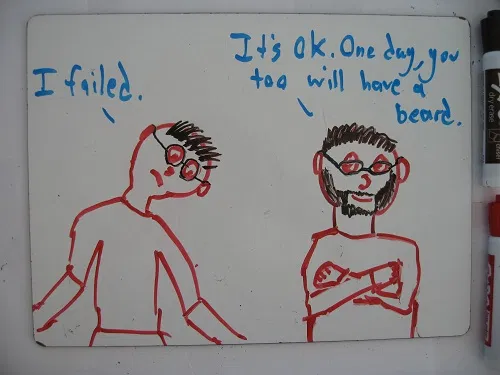 I failed.
It's OK. One day, you
too will have a
beard.